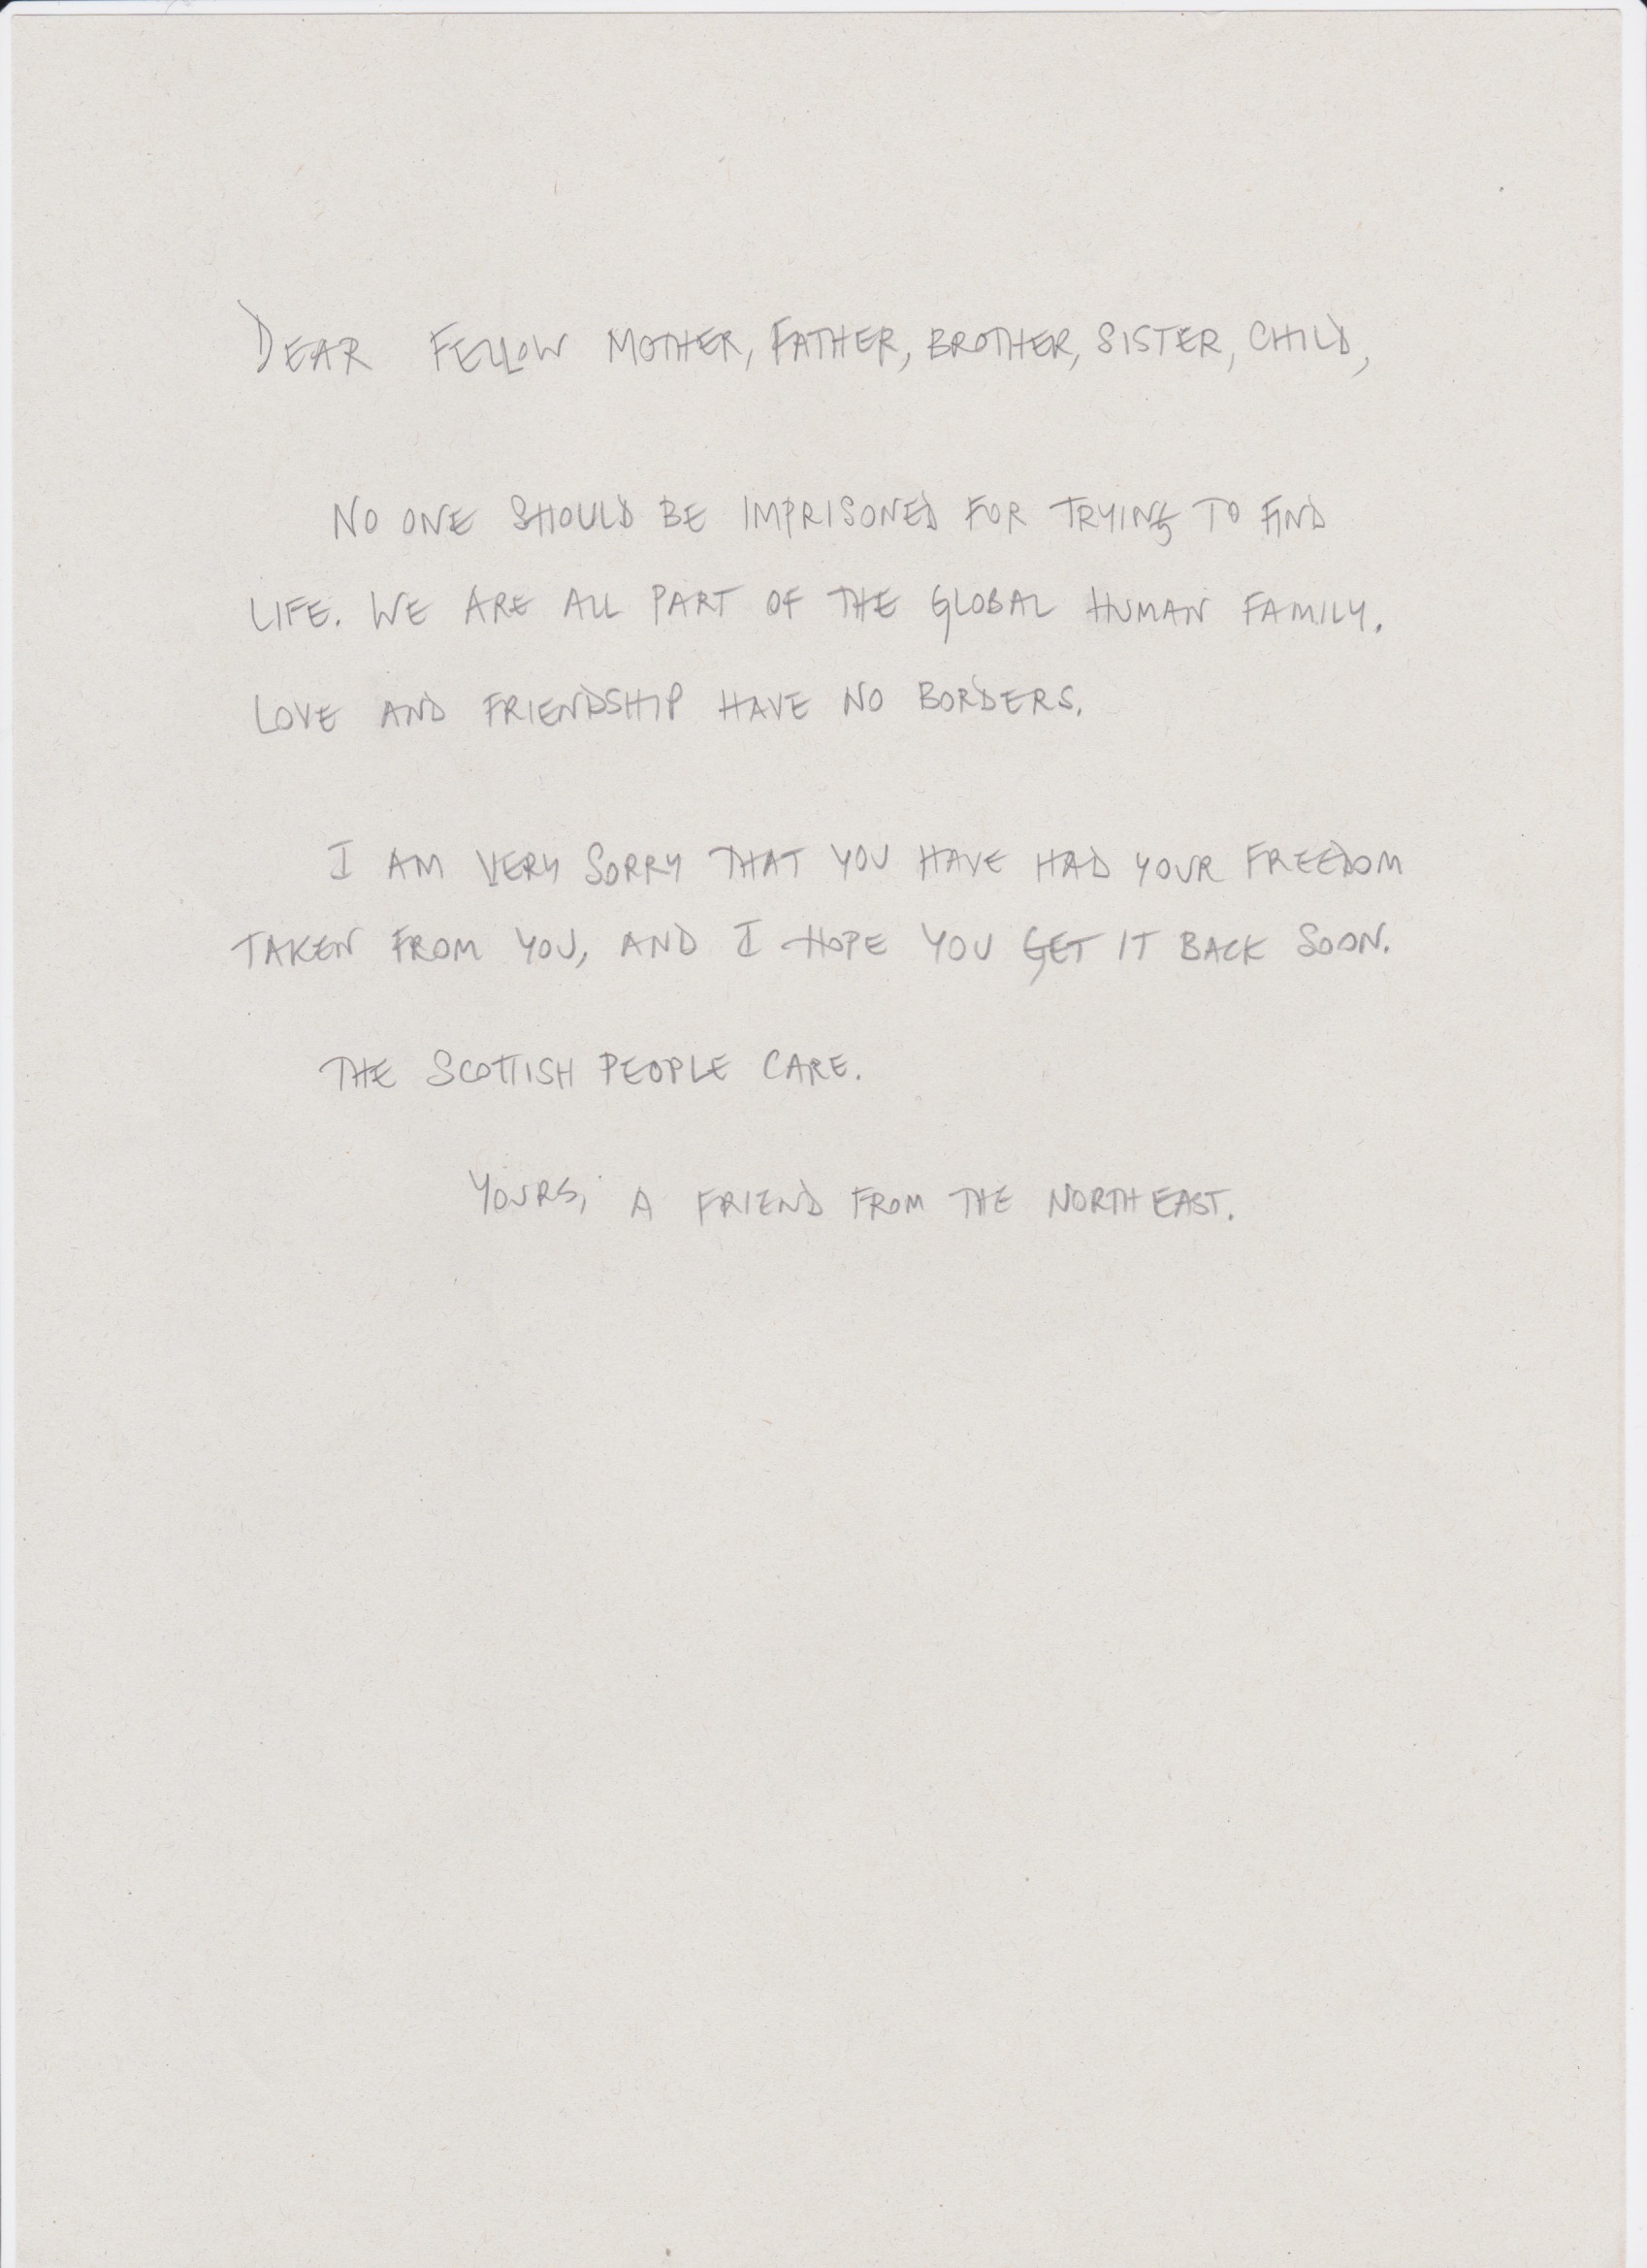 DEAR FELLOW MOTHER, FATHER, BROTHER, SISTER, CHILD,
NO ONE SHOULD BE IMPRISONED FOR TRYING TO FIND
LIFE. WE ARE ALL PART OF THE GLOBAL HUMAN FAMILY.
LOVE AND FRIENDSHIP HAVE NO BORDERS.
I AM VERY SORRY THAT YOU HAVE HAD YOUR FREEDOM
TAKEN FROM YOU, AND I HOPE YOU GET IT BACK SOON.
THE SCOTTISH PEOPLE CARE.
YOURS, A FRIEND FROM THE NORTH EAST.